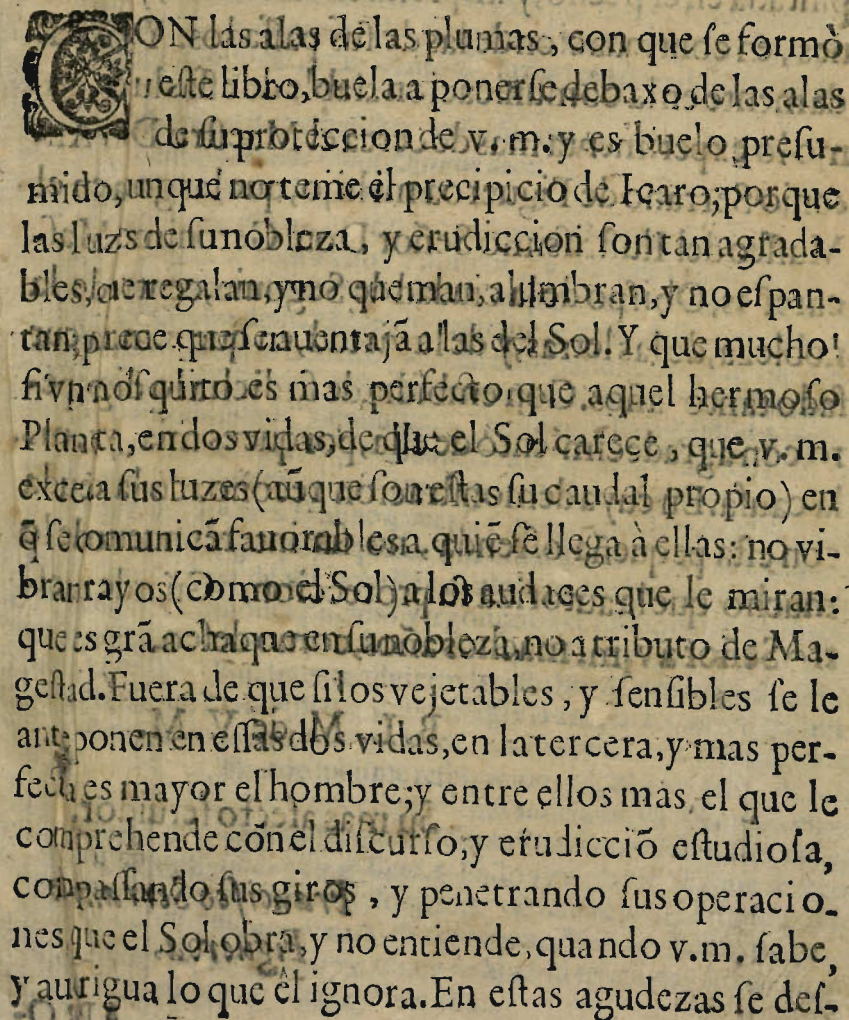 CON las alas de las plumas, con que ſe formò
eſte libro, buela a ponerſe debaxo de las alas
de ſu proteccion de v. m. y es buelo preſu-
mido, unque no teme el precipicio de Icaro; porque
las luzs de ſu nobleza, y erudiccion ſon tan agrada-
bles, regalan, y no queman, alumbran, y no eſpan-
tan; prece que ſe auentajã a las del Sol. Y que mucho!
ſi vn moſquito es mas perfecto que aquel hermoſo
Planta, en dos vidas, de que el Sol carece, que v. m.
exceda ſus luzes (aũque ſon eſtas ſu caudal propio) en
q̃ ſe comunicã fauorables a quiẽ ſe llega à ellas: no vi-
brar rayos (como el Sol) a los audaces que le miran:
que es grã achaque en ſu nobleza, no atributo de Ma-
geſtad. Fuera de que ſi los vejetables, y ſenſibles ſe le
anteponen en eſſas dos vidas, en la tercera, y mas per-
fecta es mayor el hombre; y entre ellos mas el que le
comprehende con el diſcurſo, y erudicciõ eſtudioſa,
compaſſando ſus giros, y penetrando ſus operacio-
nes que el Sol obra, y no entiende, quando v. m. ſabe,
y aurigua lo que èl ignora. En eſtas agudezas ſe deſ-